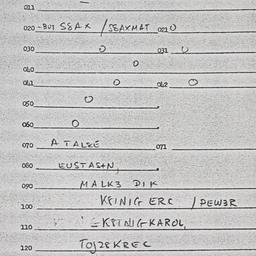 011
020 -BUT SEAX / SEAXMAT 021 O
030 O 031 O
040 O
041 O 042 O
050 O
060 O
070 A TALSE 071
080 EUSTASAN,
090 MALK3 DIK
100 KEINIG ERC / PEW3R
110 KEINIGKAROL,
120 TOJZSKREC